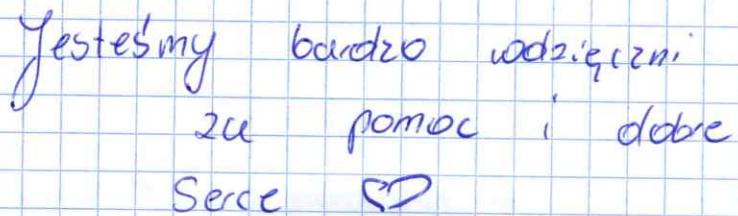 Jesteśmy bardzo wdzięczni
za pomoc i dobre
Serce ♡